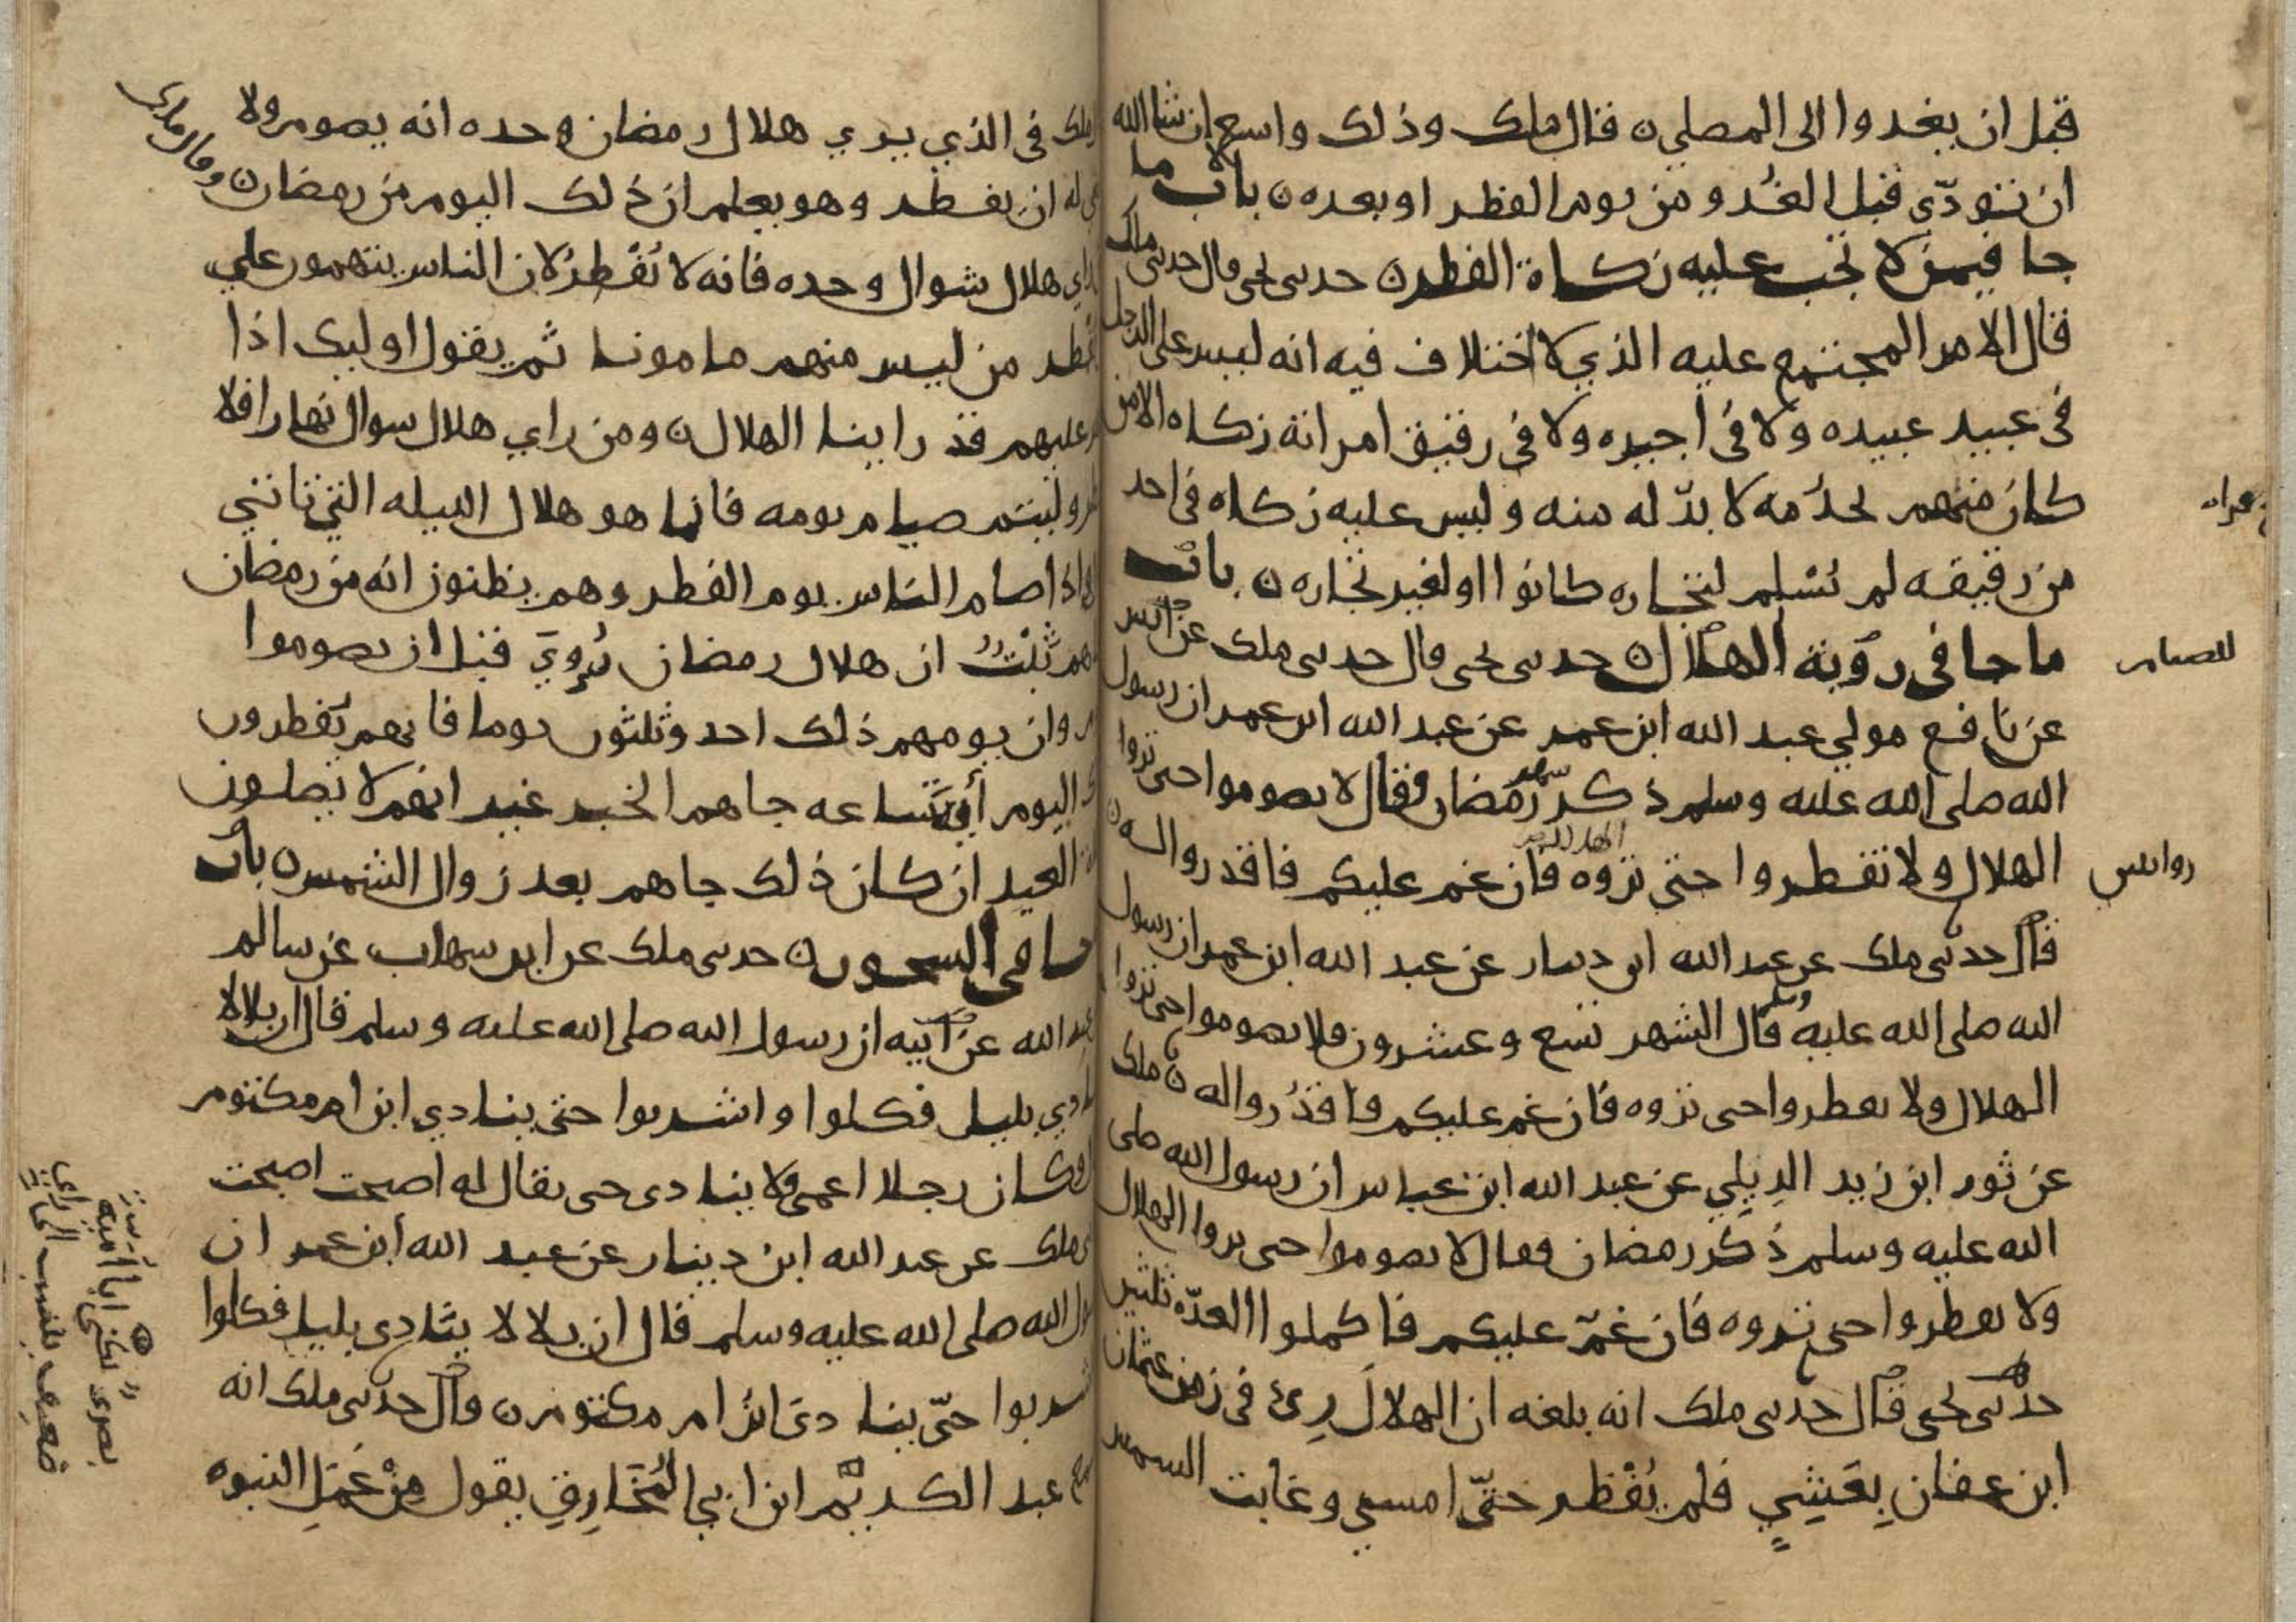 قبل ان يغدوا الى المصلى ن قال ملك وذلك واسع ان شا الله
ان تتودّي قبل الغُدو من يوم الفطر او بعده ن باب ما
جا فيمن لا تجب عليه زكاة الفطر ن حدثني يحيى قال حدثني ملك
قال الامر المجتمع عليه الذي لا اختلاف فيه انه ليس على الرجل
في عبيد عبيده ولا في اجيره ولا في رقيق امراته زكاه الا من
كان منهم يخدمه لا بدّ له منه وليس عليه زكاه في احد
من رقيقه لم يُسْلم لتجاره كانوا او لغير تجاره ن باب
ما جا في روية الهلال ن حدثني يحيى قال حدثني ملك عن
للصيام
عن نافع مولي عبد الله ابن عمر عن عبد الله ابن عمر ان رسول
الله صلى الله عليه وسلم ذكر شهر رمضان فقال لا تصوموا حتى تروا
الهلال ولا تفطروا حتى تروه فان غم عليكم فاقدروا له ن
قال حدثني ملك عن عبد الله ابن دينار عن عبد الله ابن عمر ان رسول
الله صلى الله عليه وسلم قال الشهر تسع وعشرون فلا تصوموا حتى تروا
الهلال ولا تفطروا حتى تروه فان غم عليكم فاقدُروا له ن ملك
عن ثور ابن زيد الدِيلِي عن عبد الله ابن عباس ان رسول الله صلى
الله عليه وسلم ذُكر رمضان فقال لا تصوموا حتى تروا الهلال
ولا تفطروا حتى تروه فان غمّ عليكم فاكملوا العدّه ثلثين
حدثني يحيى قال حدثني ملك انه بلغه ان الهلالَ رِئ في زمن عثمان
ابن عفان بِعَشِيٍ فلم يُفْطر حتّى امسى وغابت الشمس
ملك في الذي يري هلال رمضان وحده انه يصوم ولا
له ان يفطر وهو يعلم ان ذلك اليوم من رمضان ن وقال ملك
راي هلال شوال وحده فانه لا يُفْطرُ لان الناس يتهمون علي
يفطر من ليس منهم مامونا ثم يقول اوليك اذا
عليهم قد راينا الهلال ن ومن راي هلال شوال نهارا فلا
وليتم صيام يومه فانما هو هلال الليله التي تاتي
اذا صام الناس يوم الفطر وهم يظنون انه من رمضان
ثَبْتٌ ان هلال رمضان رُوِيَ قبل ان يصوموا
وان يومهم ذلك احد وثلثون يوما فانهم يُفطرون
اليوم أيَّةَ ساعه جاهم الخبر غير انهم لا يصلون
العيد ان كان ذلك جاهم بعد زوال الشمس ن باب
ما في السحور ن حدثني ملك عن ابن شهاب عن سالم
عبد الله عن ابيه ان رسول الله صلى الله عليه وسلم قال ان بلالا
ينادي بليل فكلوا واشربوا حتى ينادي ابن ام مكتوم
وكان رجلا اعمى لا ينادي حتى يقال له اصبحت اصبحت
ملك عن عبد الله ابن دينار عن عبد الله ابن عمر ان
رسول الله صلى الله عليه وسلم قال ان بلالا ينادِي بليل فكلوا
واشربوا حتّى ينادى ابن ام مكتوم ن قال حدثني ملك انه
سمع عبد الكريم ابن ابي المُخَارِقِ يقول مِنْ عَمَلِ النبوه
بصرى يكنى ابا امية
ضعيف